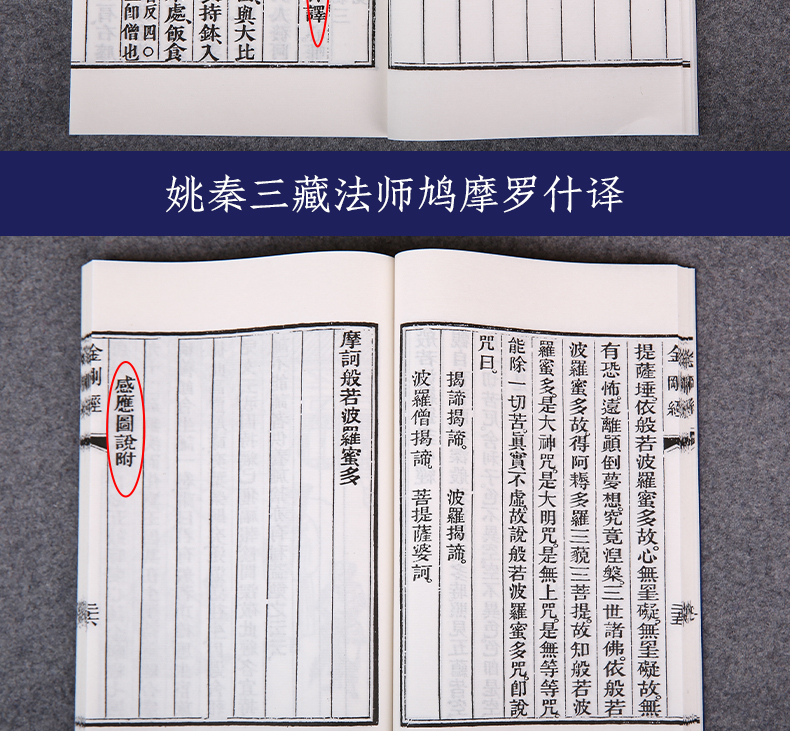 譯
與大比
持鉢入
處飯食
反四〇
師僧也
姚秦三藏法师鸠摩罗什译
金剛經
提薩埵依般若波羅蜜多故。心無罣礙。無罣礙故。無
有恐怖。遠離顛倒夢想。究竟涅槃。三世諸佛。依般若
波羅蜜多故。得阿耨多羅三藐三菩提。故知般若波
羅蜜多。是大神咒。是大明咒。是無上咒。是無等等咒。
能除一切苦。真實不虛。故說般若波羅蜜多咒。即說
咒曰。
揭諦揭諦。 波羅揭諦。
波羅僧揭諦。 菩提薩婆訶。
摩訶般若波羅蜜多
感應圖說附
金剛經